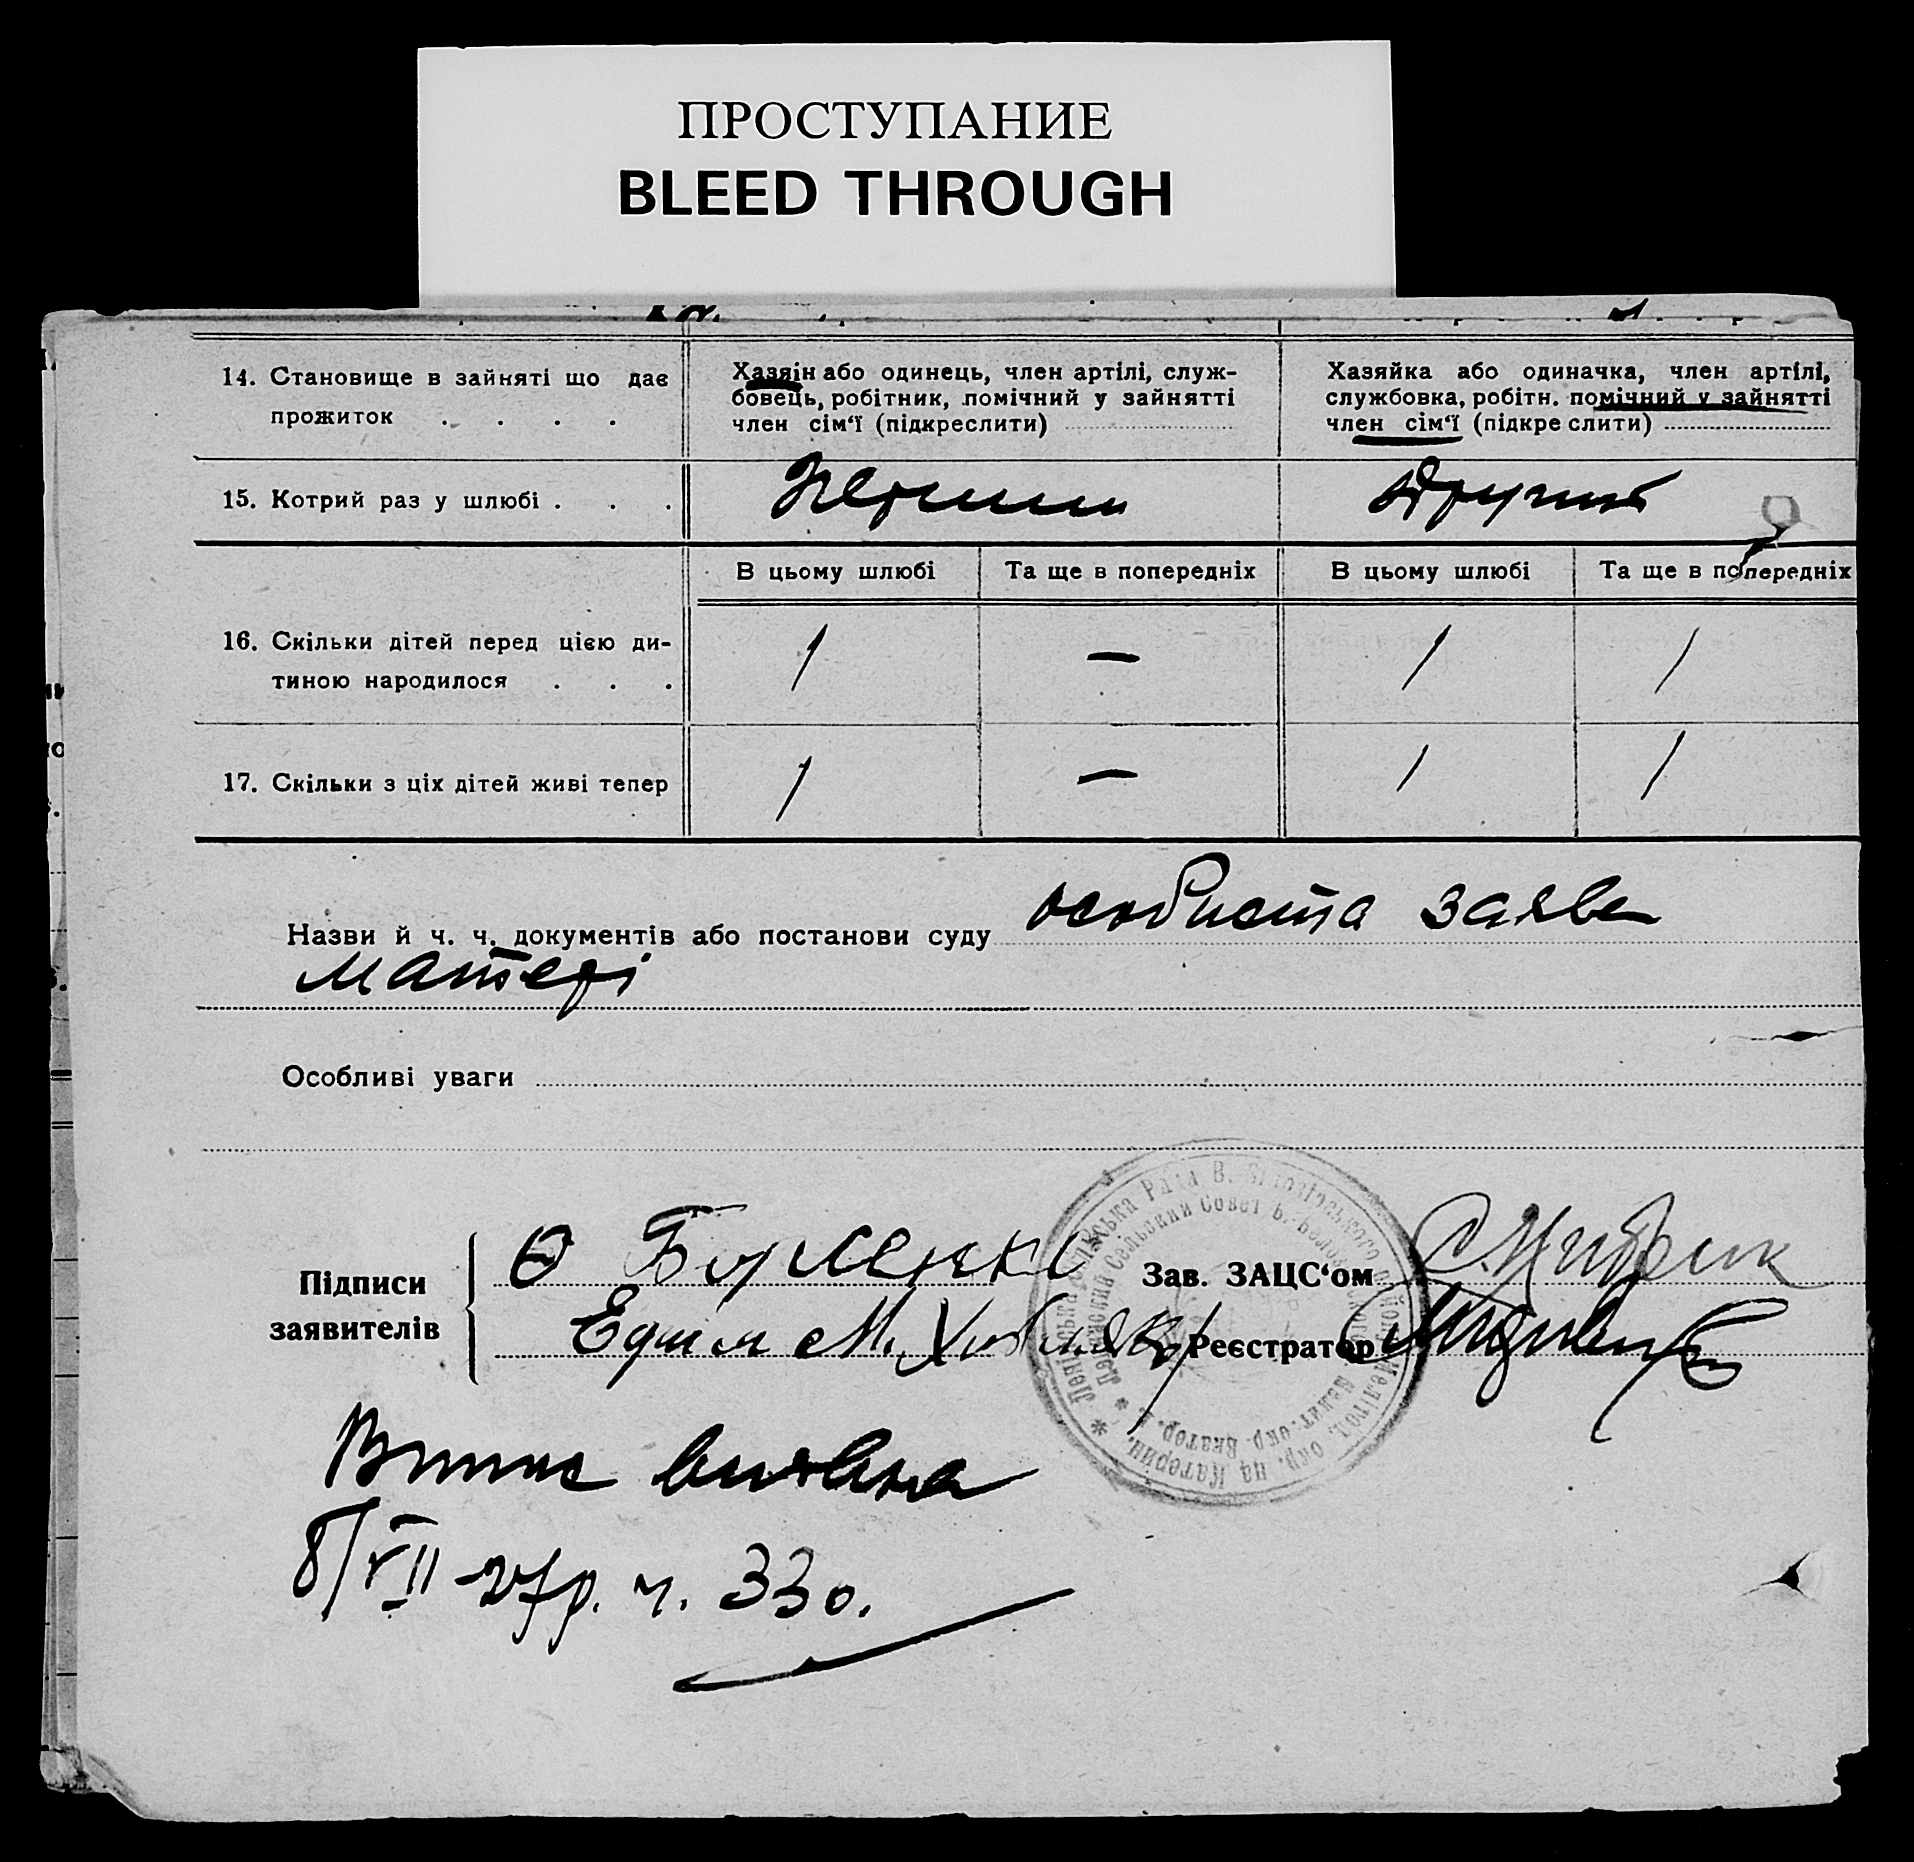 ПРОСТУПАНИЕ
BLEED THROUGH
14. Становище в зайняті що дає прожиток . . . .
Хазяін або одинець, член артілі, служ-
бовець, робітник, помічний у зайнятті
член сім‘ї (підкреслити)
Хазяйка або одиначка, член артілі,
службовка, робітн. помічний у зайнятті
член сім‘ї (підкреслити)
15. Котрий раз у шлюбі . . .
Перший
Другий
В цьому шлюбі
Та ще в попередніх
В цьому шлюбі
Та ще в попередніх
16. Скільки дітей перед цією ди-
тиною народилося . . .
1 — 1 1
17. Скільки з ціх дітей живі тепер
1 — 1 1
Назви й ч. ч. документів або постанови суду особиста заява
матері
Особливі уваги
Підписи
заявителів
Зав. ЗАЦС‘ом
Реєстратор
8/VII-27р. ч. 330.